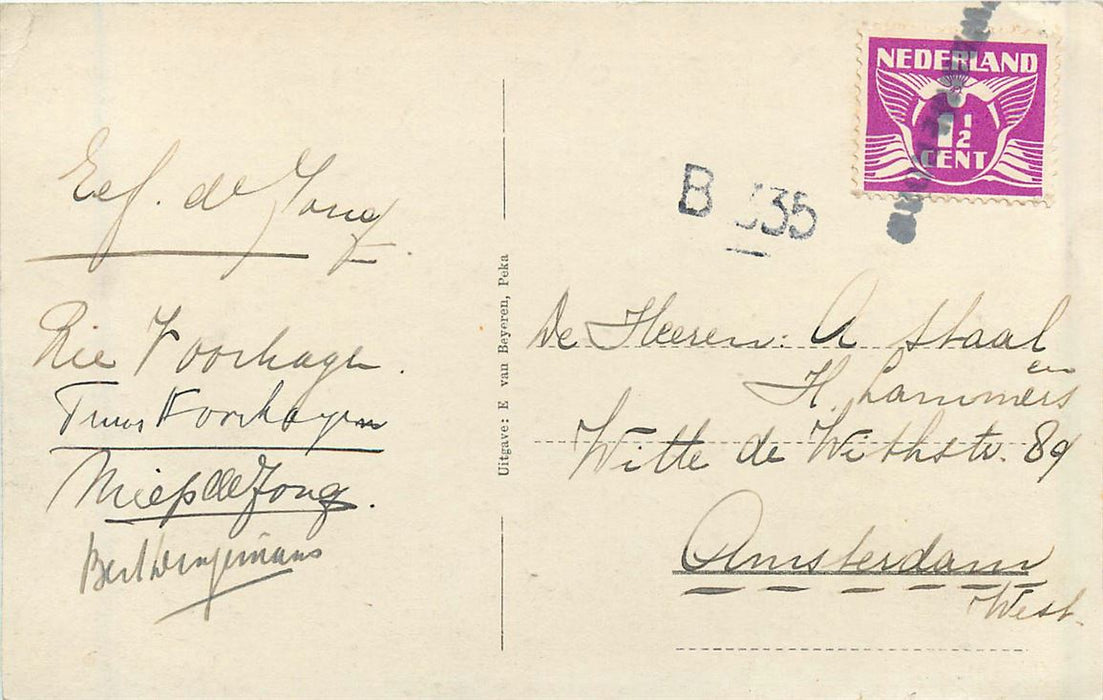 Eef. de Jong.
Rie Voorhagen.
Truus Voorhagen
Miep de Jong.
Bert
Uitgave: E van Beyeren, Peka
NEDERLAND
1½
CENT
B 335
De Heeren: A Staal
en
H. Lammers
Witte de Withstr. 89
Amsterdam
West.